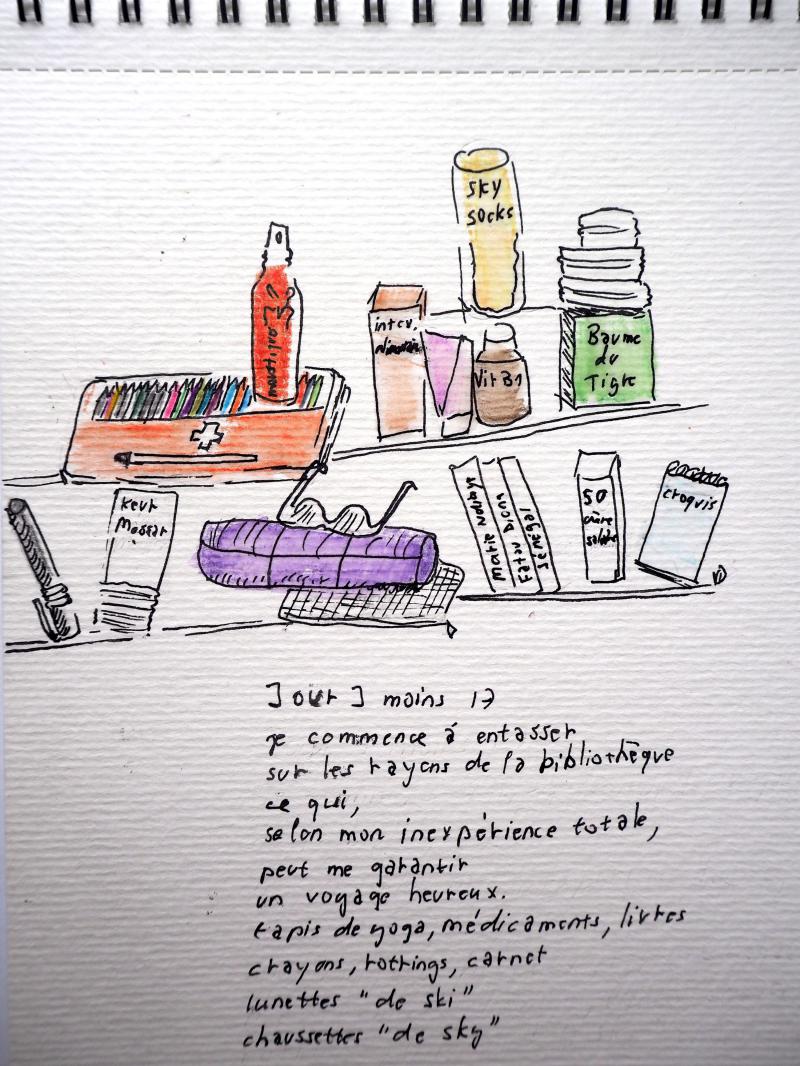 sky
socks
Baume
du
Tigre
Vit B1
Keur
Massar
Fatou Diome
Sénégal
50
croquis
Jour J moins 17
je commence à entasser
sur les rayons de la bibliothèque
ce qui,
selon mon inexpérience totale,
peut me garantir
un voyage heureux.
tapis de yoga, médicaments, livres
crayons, rottrings, carnet
lunettes "de ski"
chaussettes "de sky"